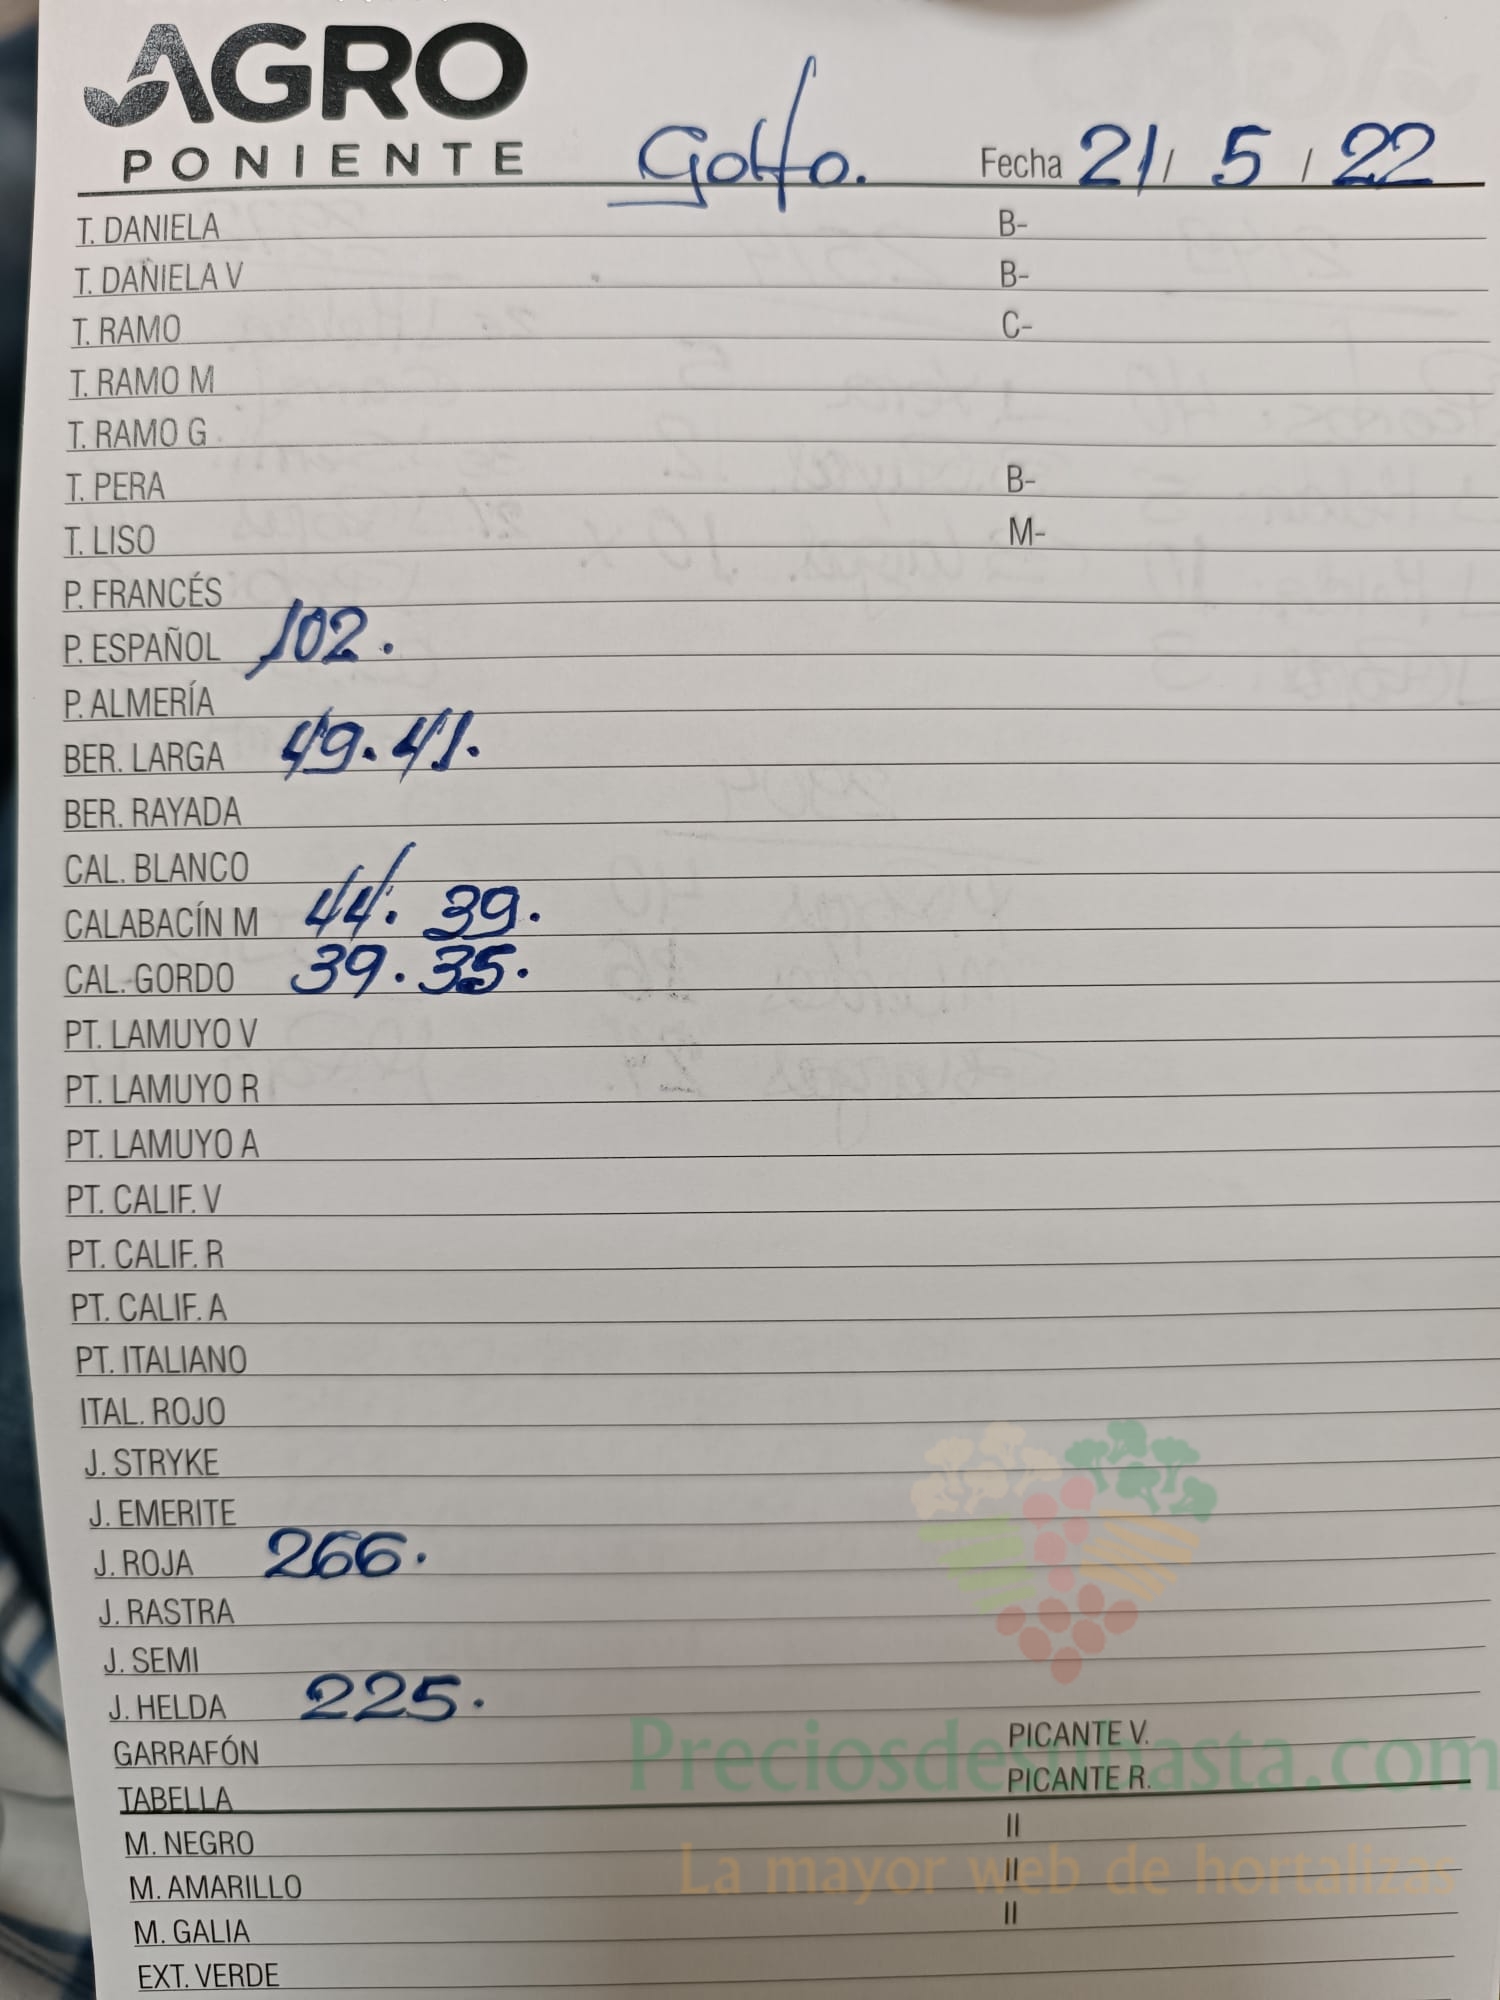 AGRO
PONIENTE
Golfo. Fecha 21/ 5 / 22
T. DANIELA B-
T. DANIELA V B-
T. RAMO C-
T. RAMO M
T. RAMO G
T. PERA B-
T. LISO M-
P. FRANCÉS
P. ESPAÑOL 102.
P. ALMERÍA
BER. LARGA 49. 41.
BER. RAYADA
CAL. BLANCO
CALABACÍN M 44. 39.
CAL. GORDO 39. 35.
PT. LAMUYO V
PT. LAMUYO R
PT. LAMUYO A
PT. CALIF. V
PT. CALIF. R
PT. CALIF. A
PT. ITALIANO
ITAL. ROJO
J. STRYKE
J. EMERITE
J. ROJA 266.
J. RASTRA
J. SEMI
J. HELDA 225.
GARRAFÓN PICANTE V.
Preciosdesubasta.com
TABELLA PICANTE R.
M. NEGRO II
La mayor web de hortalizas
M. AMARILLO II
M. GALIA II
EXT. VERDE